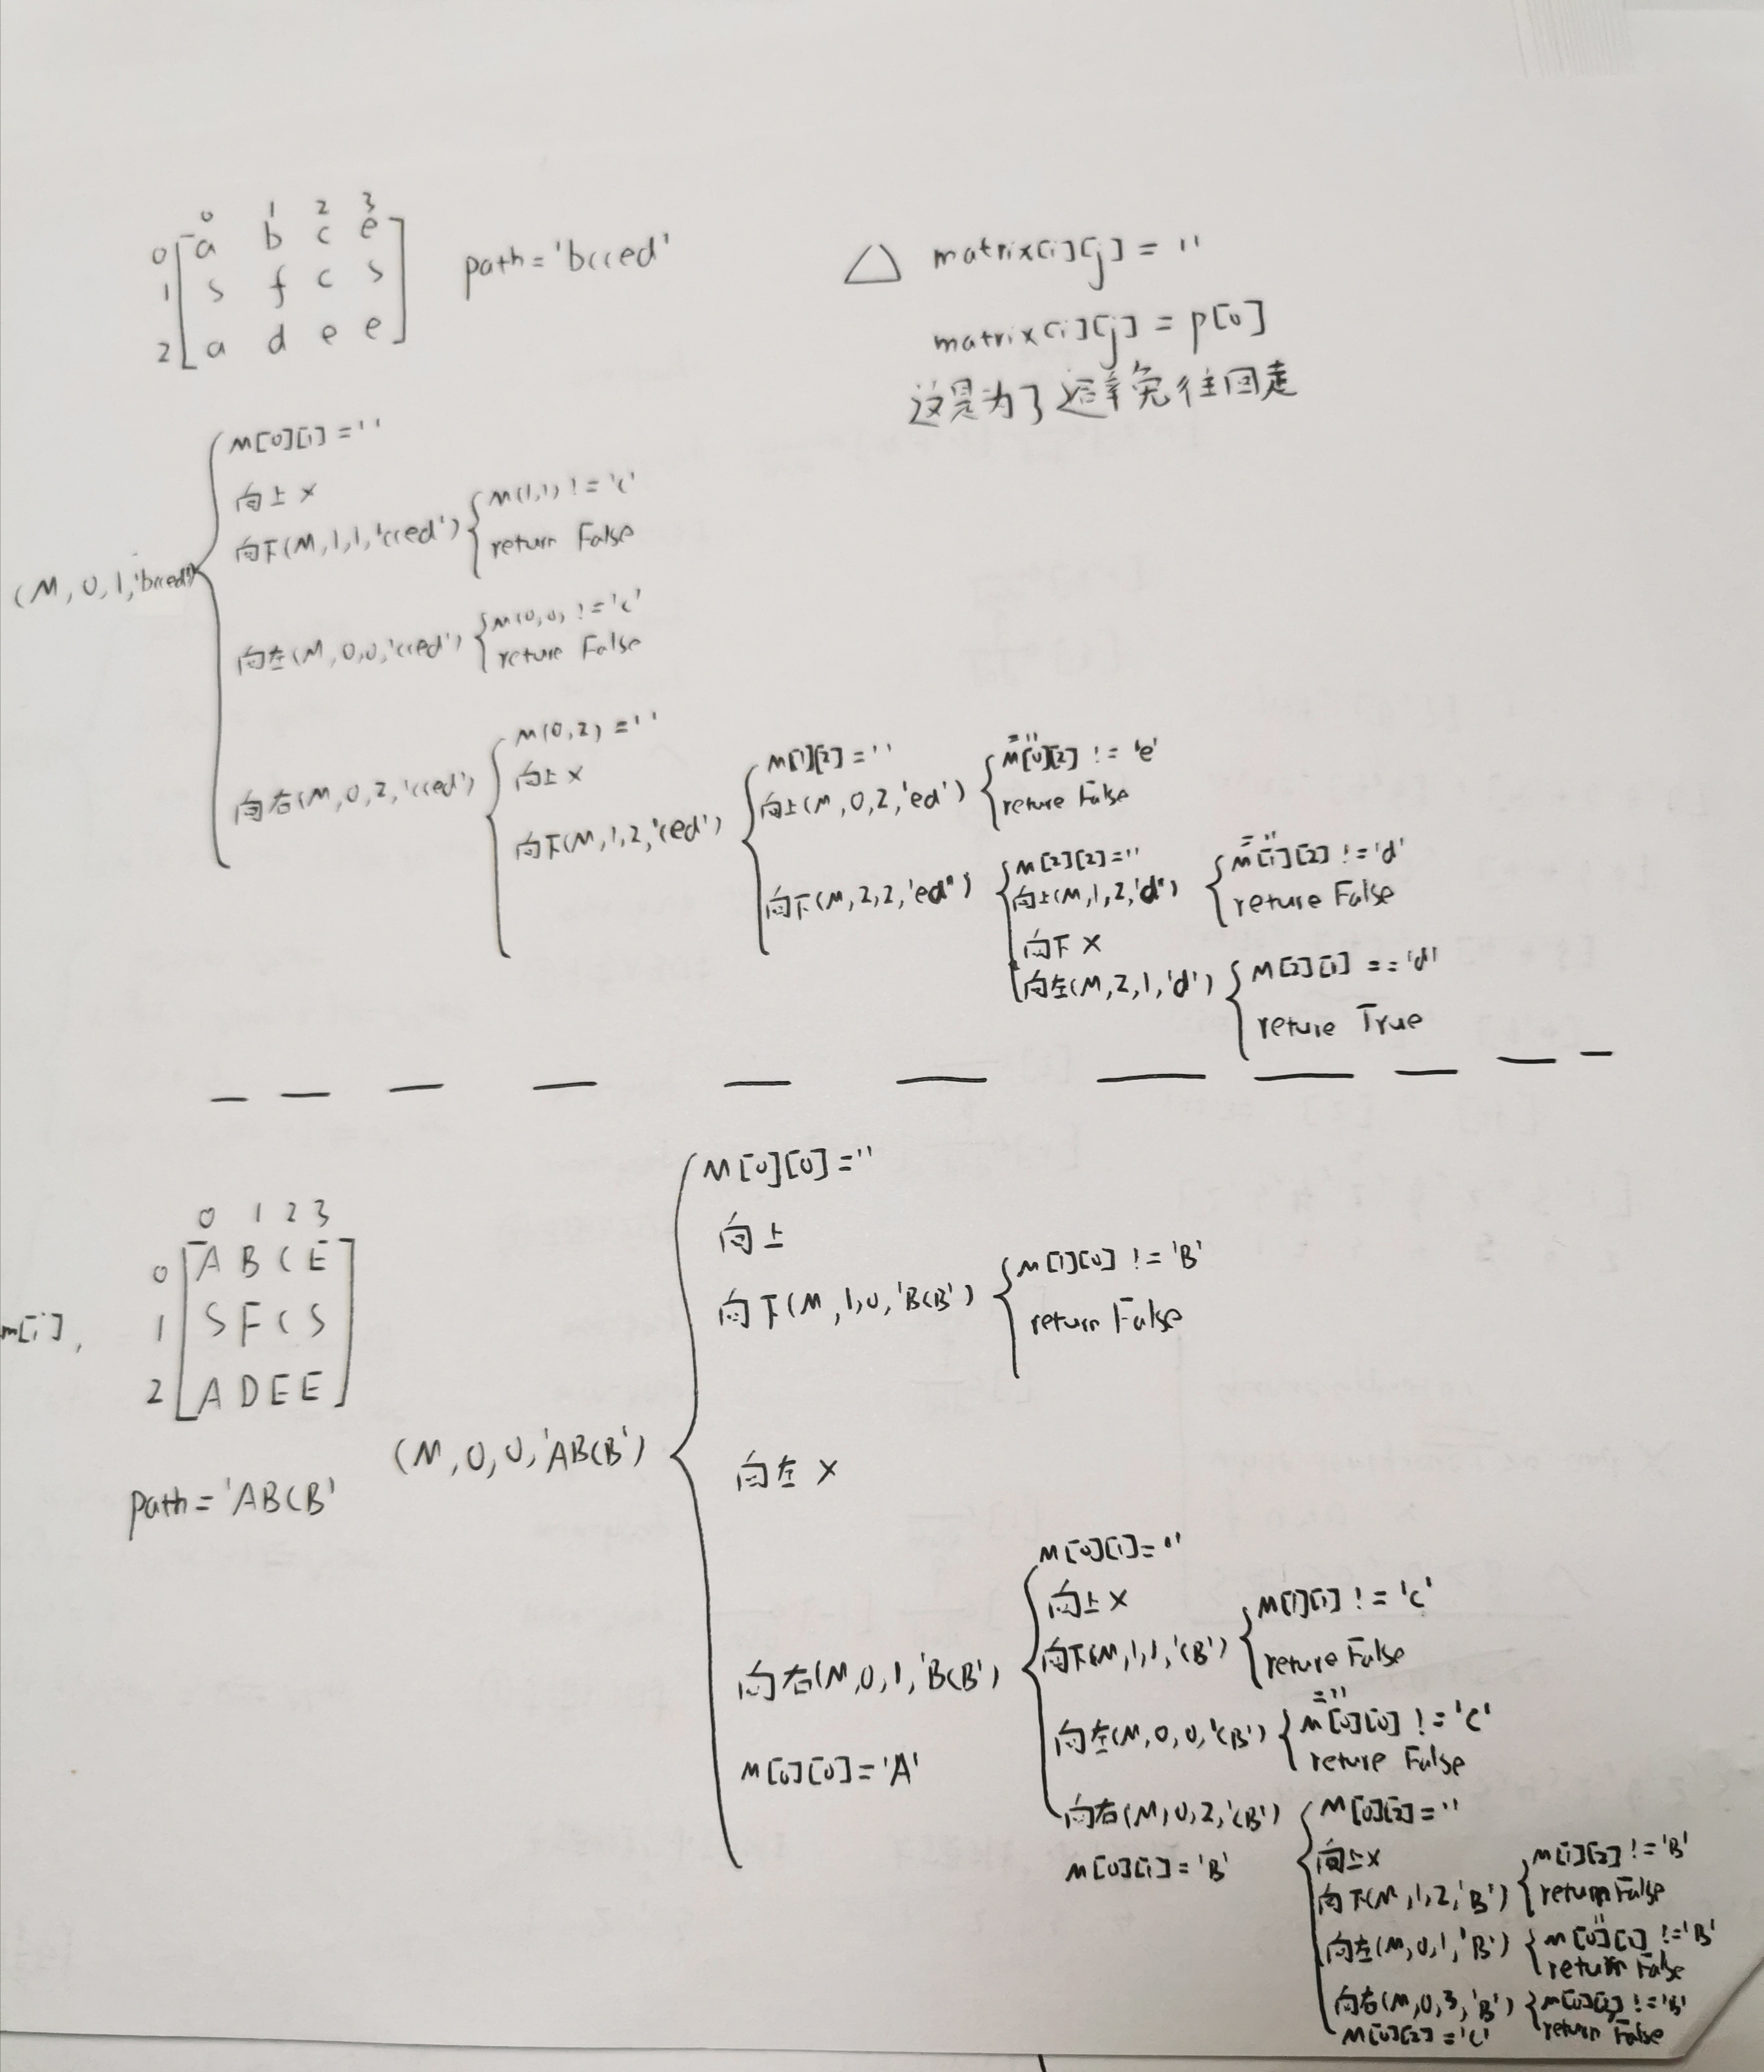 0 1 2 3
0 a b c e
1 s f c s
2 a d e e
path='bcced'
△ matrix[i][j] = ''
matrix[i][j] = p[0]
这是为了避免往回走
(M,0,1,'bcced')
M[0][1]=''
向上×
向下(M,1,1,'cced')
M(1,1) != 'c'
return False
向左(M,0,0,'cced')
M(0,0) != 'c'
return False
向右(M,0,2,'cced')
M(0,2) = ''
向上×
向下(M,1,2,'ced')
M[1][2]=''
向上(M,0,2,'ed')
=''
M[0][2] != 'e'
return False
向下(M,2,2,'ed')
M[2][2]=''
向上(M,1,2,'d')
=''
M[1][2] != 'd'
return False
向下×
向左(M,2,1,'d')
M[2][1] == 'd'
return True
0 1 2 3
0 A B C E
1 S F C S
2 A D E E
m[i],
path='ABCB'
(M,0,0,'ABCB')
M[0][0]=''
向上
向下(M,1,0,'BCB')
M[1][0] != 'B'
return False
向左×
向右(M,0,1,'BCB')
M[0][1]=''
向上×
向下(M,1,1,'CB')
M[1][1] != 'C'
return False
向左(M,0,0,'CB')
=''
M[0][0] != 'C'
return False
向右(M,0,2,'CB')
M[0][2]=''
向上×
向下(M,1,2,'B')
M[1][2] != 'B'
return False
向左(M,0,1,'B')
''
M[0][1] != 'B'
return False
向右(M,0,3,'B')
M[0][3] != 'B'
return False
M[0][2]='C'
M[0][1]='B'
M[0][0]='A'